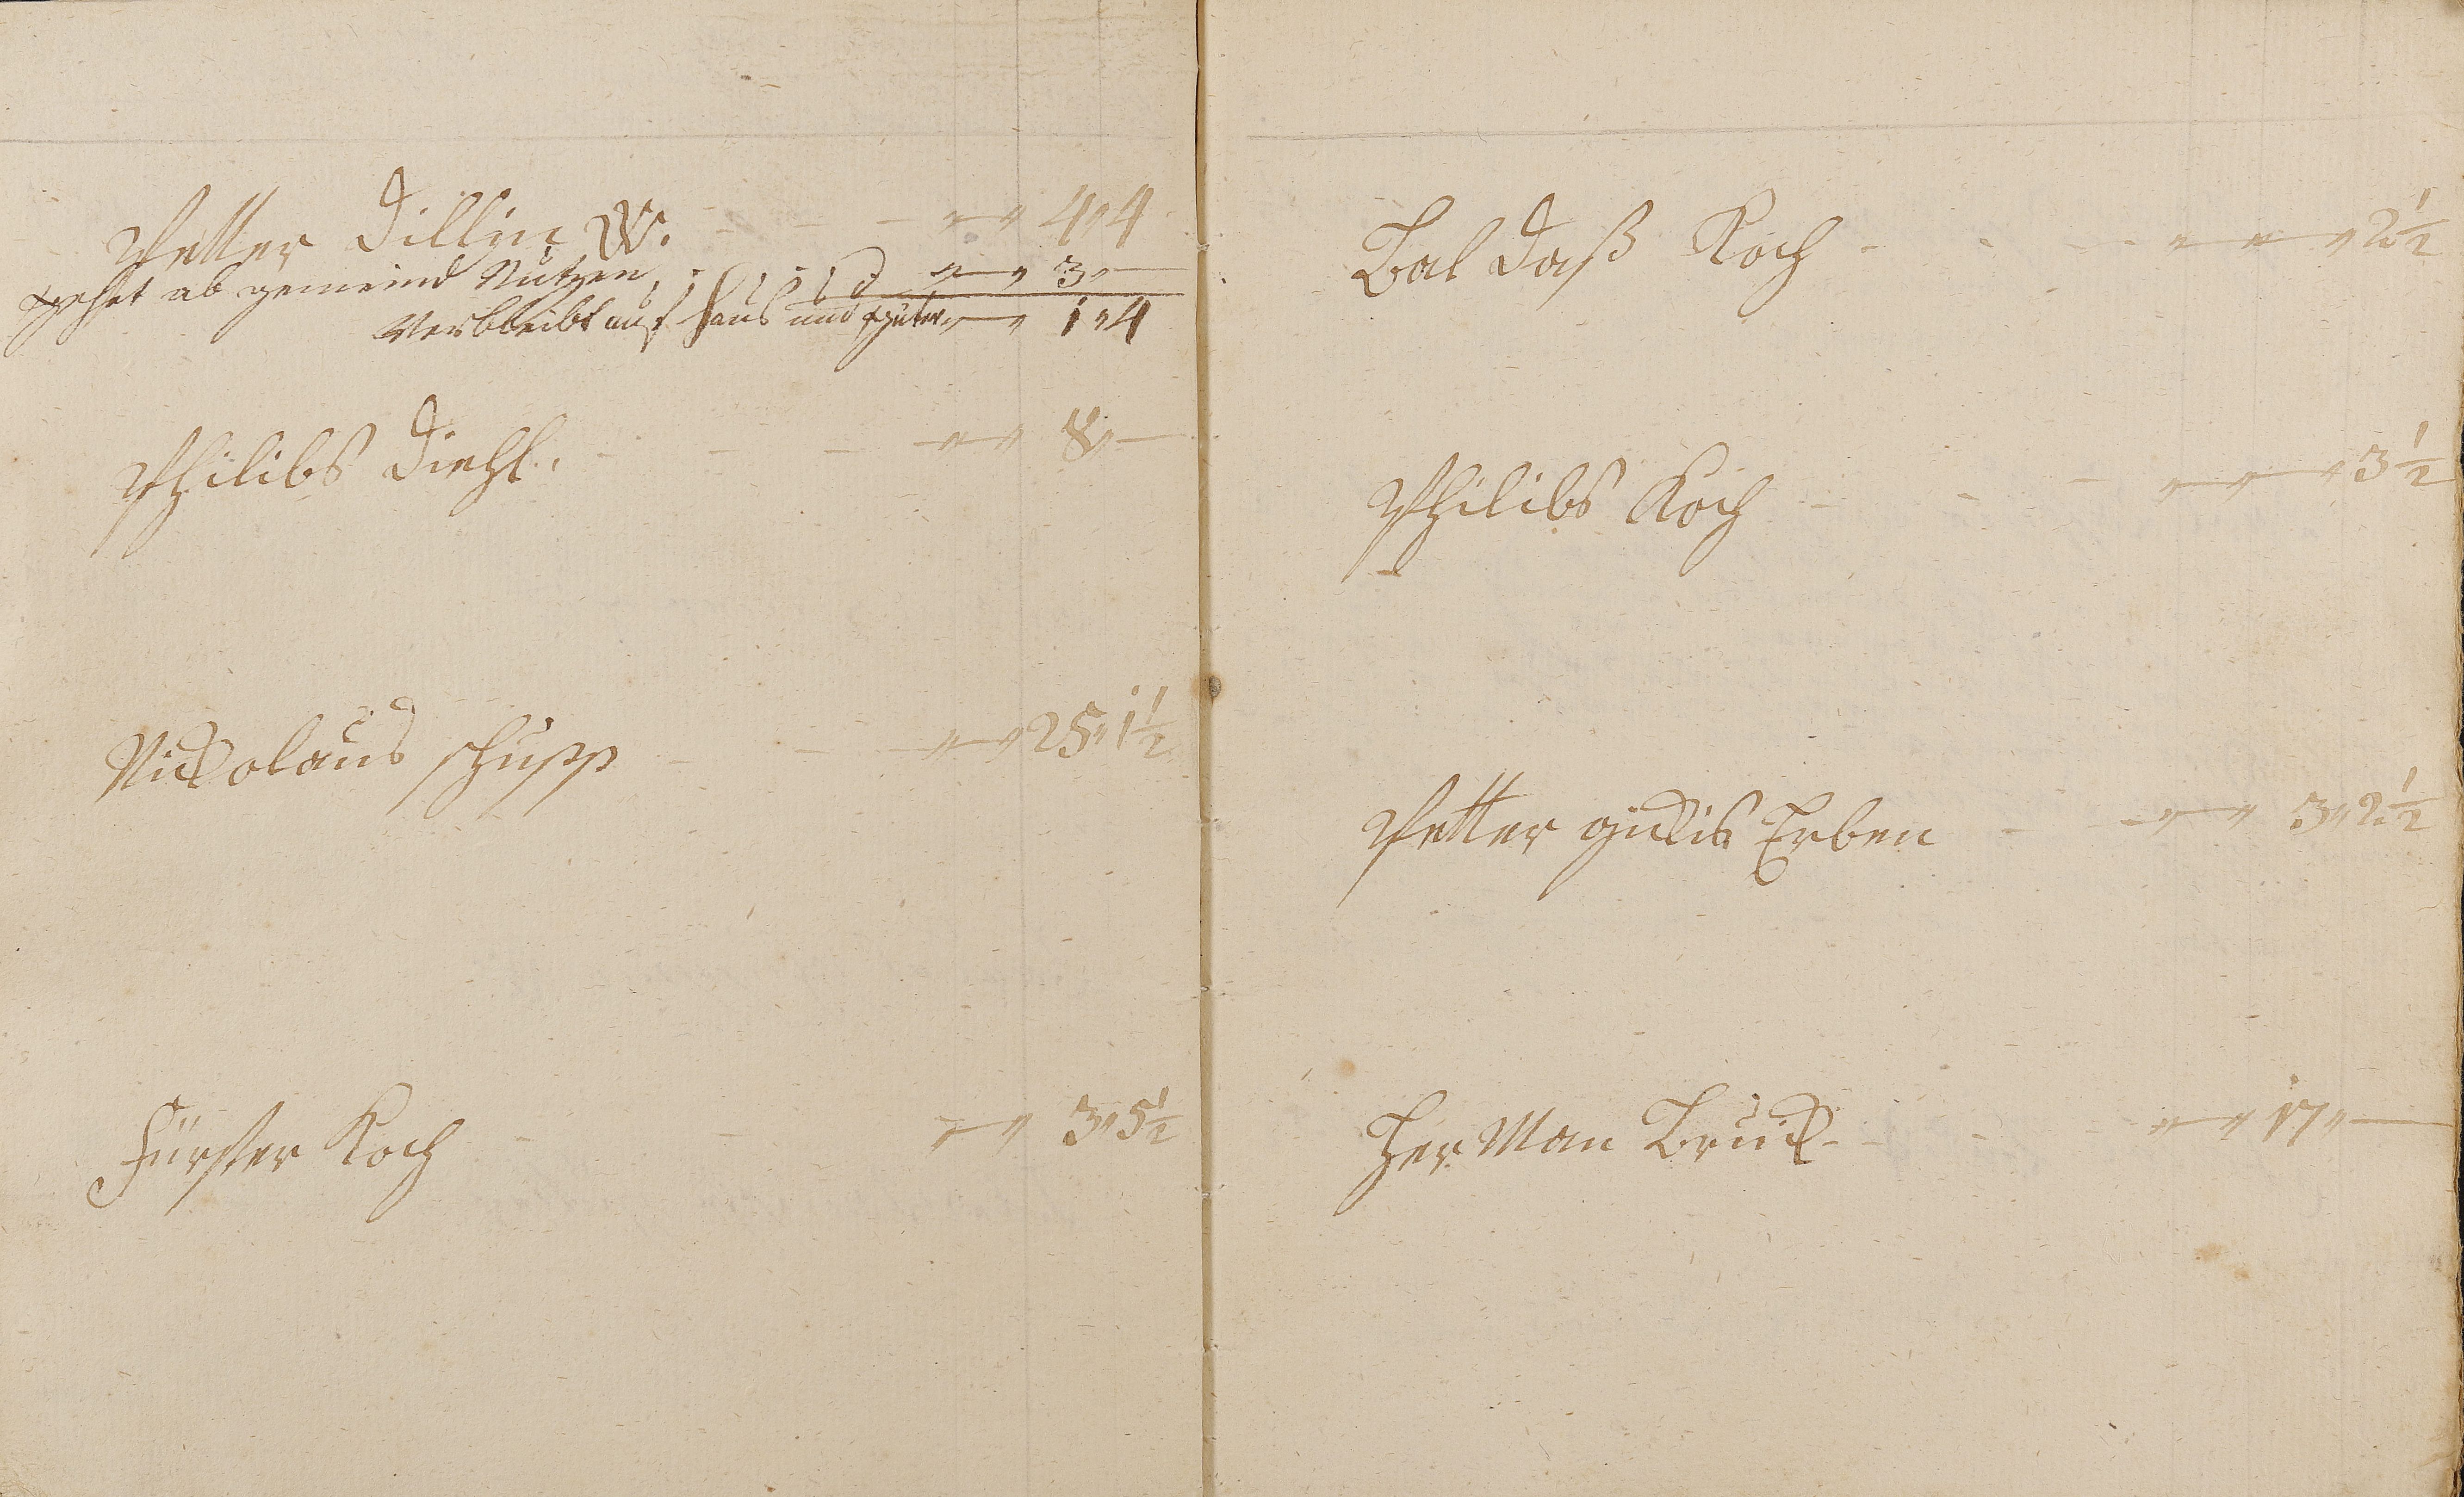 Petter Dilling W. - - - " — " 4 " 4
gehet ab gemeind Nutzen, " — " 3 " —
Verbleibt auf Haus und güter " — " 1 " 4
Philibs Diehl. - - - — " — " 8 " —
Nickolaus schupp - - — " — " 25 " 1 1/2
Fürster Koch - - " — " 3 " 5 1/2
Bal Daß Koch - - - " — " — " 2 1/2
Philibs Koch - - - " — " — " 3 1/2
Petter Erben - - " — " 3 " 2 1/2
Her Man Bruck - - - " — " 17 " —